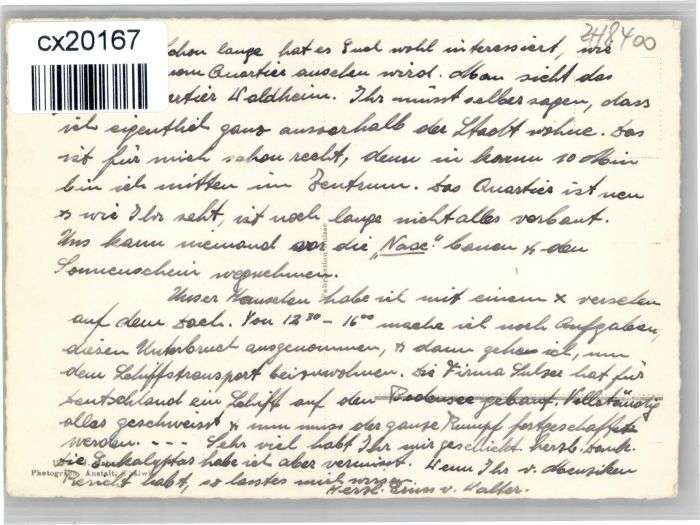 cx20167
248400
Schon lange hat es Euch wohl interessiert, wie
Quartier aussehen wird. Man sieht das
Quartier Waldheim. Ihr müsst selber sagen, dass
ich eigentlich ganz ausserhalb der Stadt wohne. Das
ist für mich schon recht, denn in kaum 10 Min
bin ich mitten im Zentrum. Das Quartier ist neu
& wie Ihr seht, ist noch lange nicht alles verbaut.
Uns kann niemand vor die „Nase" bauen & den
Sonnenschein wegnehmen.
Unser Häuschen habe ich mit einem x versehen
auf dem Dach. Von 12 30 - 16 00 mache ich noch Aufgaben,
diesen Unterbruch ausgenommen, & dann gehe ich, um
dem Schiffstransport beizuwohnen. Die Firma Sulzer hat für
Deutschland ein Schiff auf den Bodensee gebaut. Vollständig
alles geschweisst & nun muss der ganze Rumpf fortgeschafft
werden. --- Sehr viel habt Ihr mir geschickt. herzl. Dank.
Die Eukalyptas habe ich aber vermisst. Wenn Ihr v.
Bericht habt, so lasst es mich wissen.
Photograph. Anstalt,
Herzl. Gruss v. Walter.